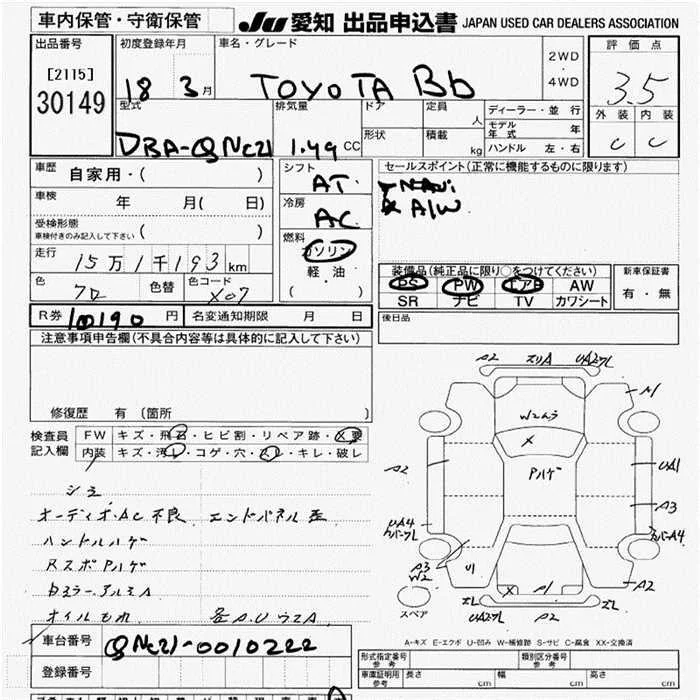 車内保管・守衛保管
JU 愛知 出品申込書 JAPAN USED CAR DEALERS ASSOCIATION
出品番号
[2115]
30149
初度登録年月
18 3月
車名・グレード
TOYOTA Bb
2WD
・
4WD
評価点
3.5
外装 内装
C C
型式
DBA-QNC21
排気量
1.49 CC
ドア
形状
定員 人
積載 kg
ディーラー・並行
モデル年式 年
ハンドル 左・右
車歴 自家用・( )
車検 年 月( 日)
受検形態
車検付きのみ記入して下さい ( )
走行 15万1千193km
色 色替 色コード
X07
シフト
AT
冷房
AC
燃料
ガソリン
軽油
( )
セールスポイント(正常に機能するものに限ります)
Navi
A/W
装備品(純正品に限り○をつけてください)
PS PW エアB AW
SR ナビ TV カワシート
新車保証書
有・無
R券 10190円
名変通知期限 月 日
後日品
注意事項申告欄(不具合内容等は具体的に記入して下さい)
修復歴 有 (箇所 )
検査員記入欄
FW キズ・飛石・ヒビ割・リペア跡・X要
内装 キズ・汚れ・コゲ・穴・スレ・キレ・破レ
シミ
オーディオ・AC不良 エンドパネル歪
ハンドルハゲ
RスポAハゲ
オイルもれ
A2 スリA
A1
W2
X
Pハゲ
A2
UA1
A3
UA4
A3
W2
U1
X A1
A2
スペア
A2
A-キズ E-エクボ U-凹み W-補修跡 S-サビ C-腐食 XX-交換済
車台番号 QNC21-0010222
登録番号
形式指定番号 参考
類別区分番号 参考
車庫証明用 参考 長さ cm 幅 cm 高さ cm